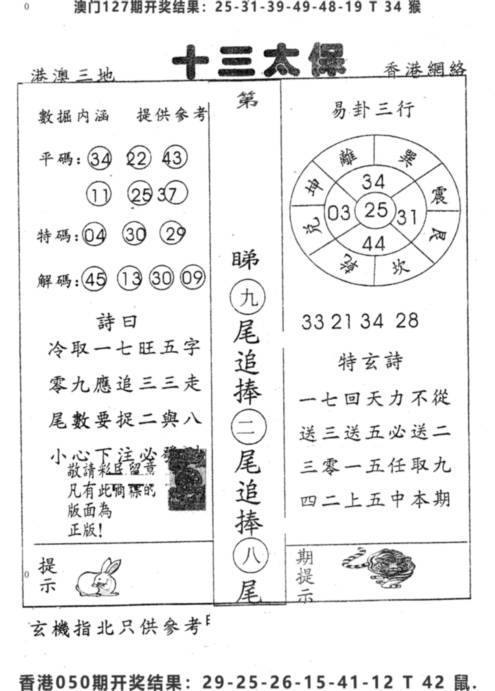 澳门127期开奖结果：25-31-39-49-48-19 T 34 猴
港澳三地
十三太保
香港網絡
數掘內涵 提供參考
平碼：34 22 43
11 25 37
特碼：04 30 29
解碼：45 13 30 09
詩曰
冷取一七旺五字
零九應追三三走
尾數要捉二與八
小心下注必
敬請彩民留意
凡有此商標的
版面為
正版！
提示
第
睇九尾追捧二尾追捧八尾
易卦三行
離 巽 震 艮 坎 乾 兌 坤
34
03 25 31
44
33 21 34 28
特玄詩
一七回天力不從
送三送五必送二
三零一五任取九
四二上五中本期
期提示
玄機指北只供參考
香港050期开奖结果：29-25-26-15-41-12 T 42 鼠.